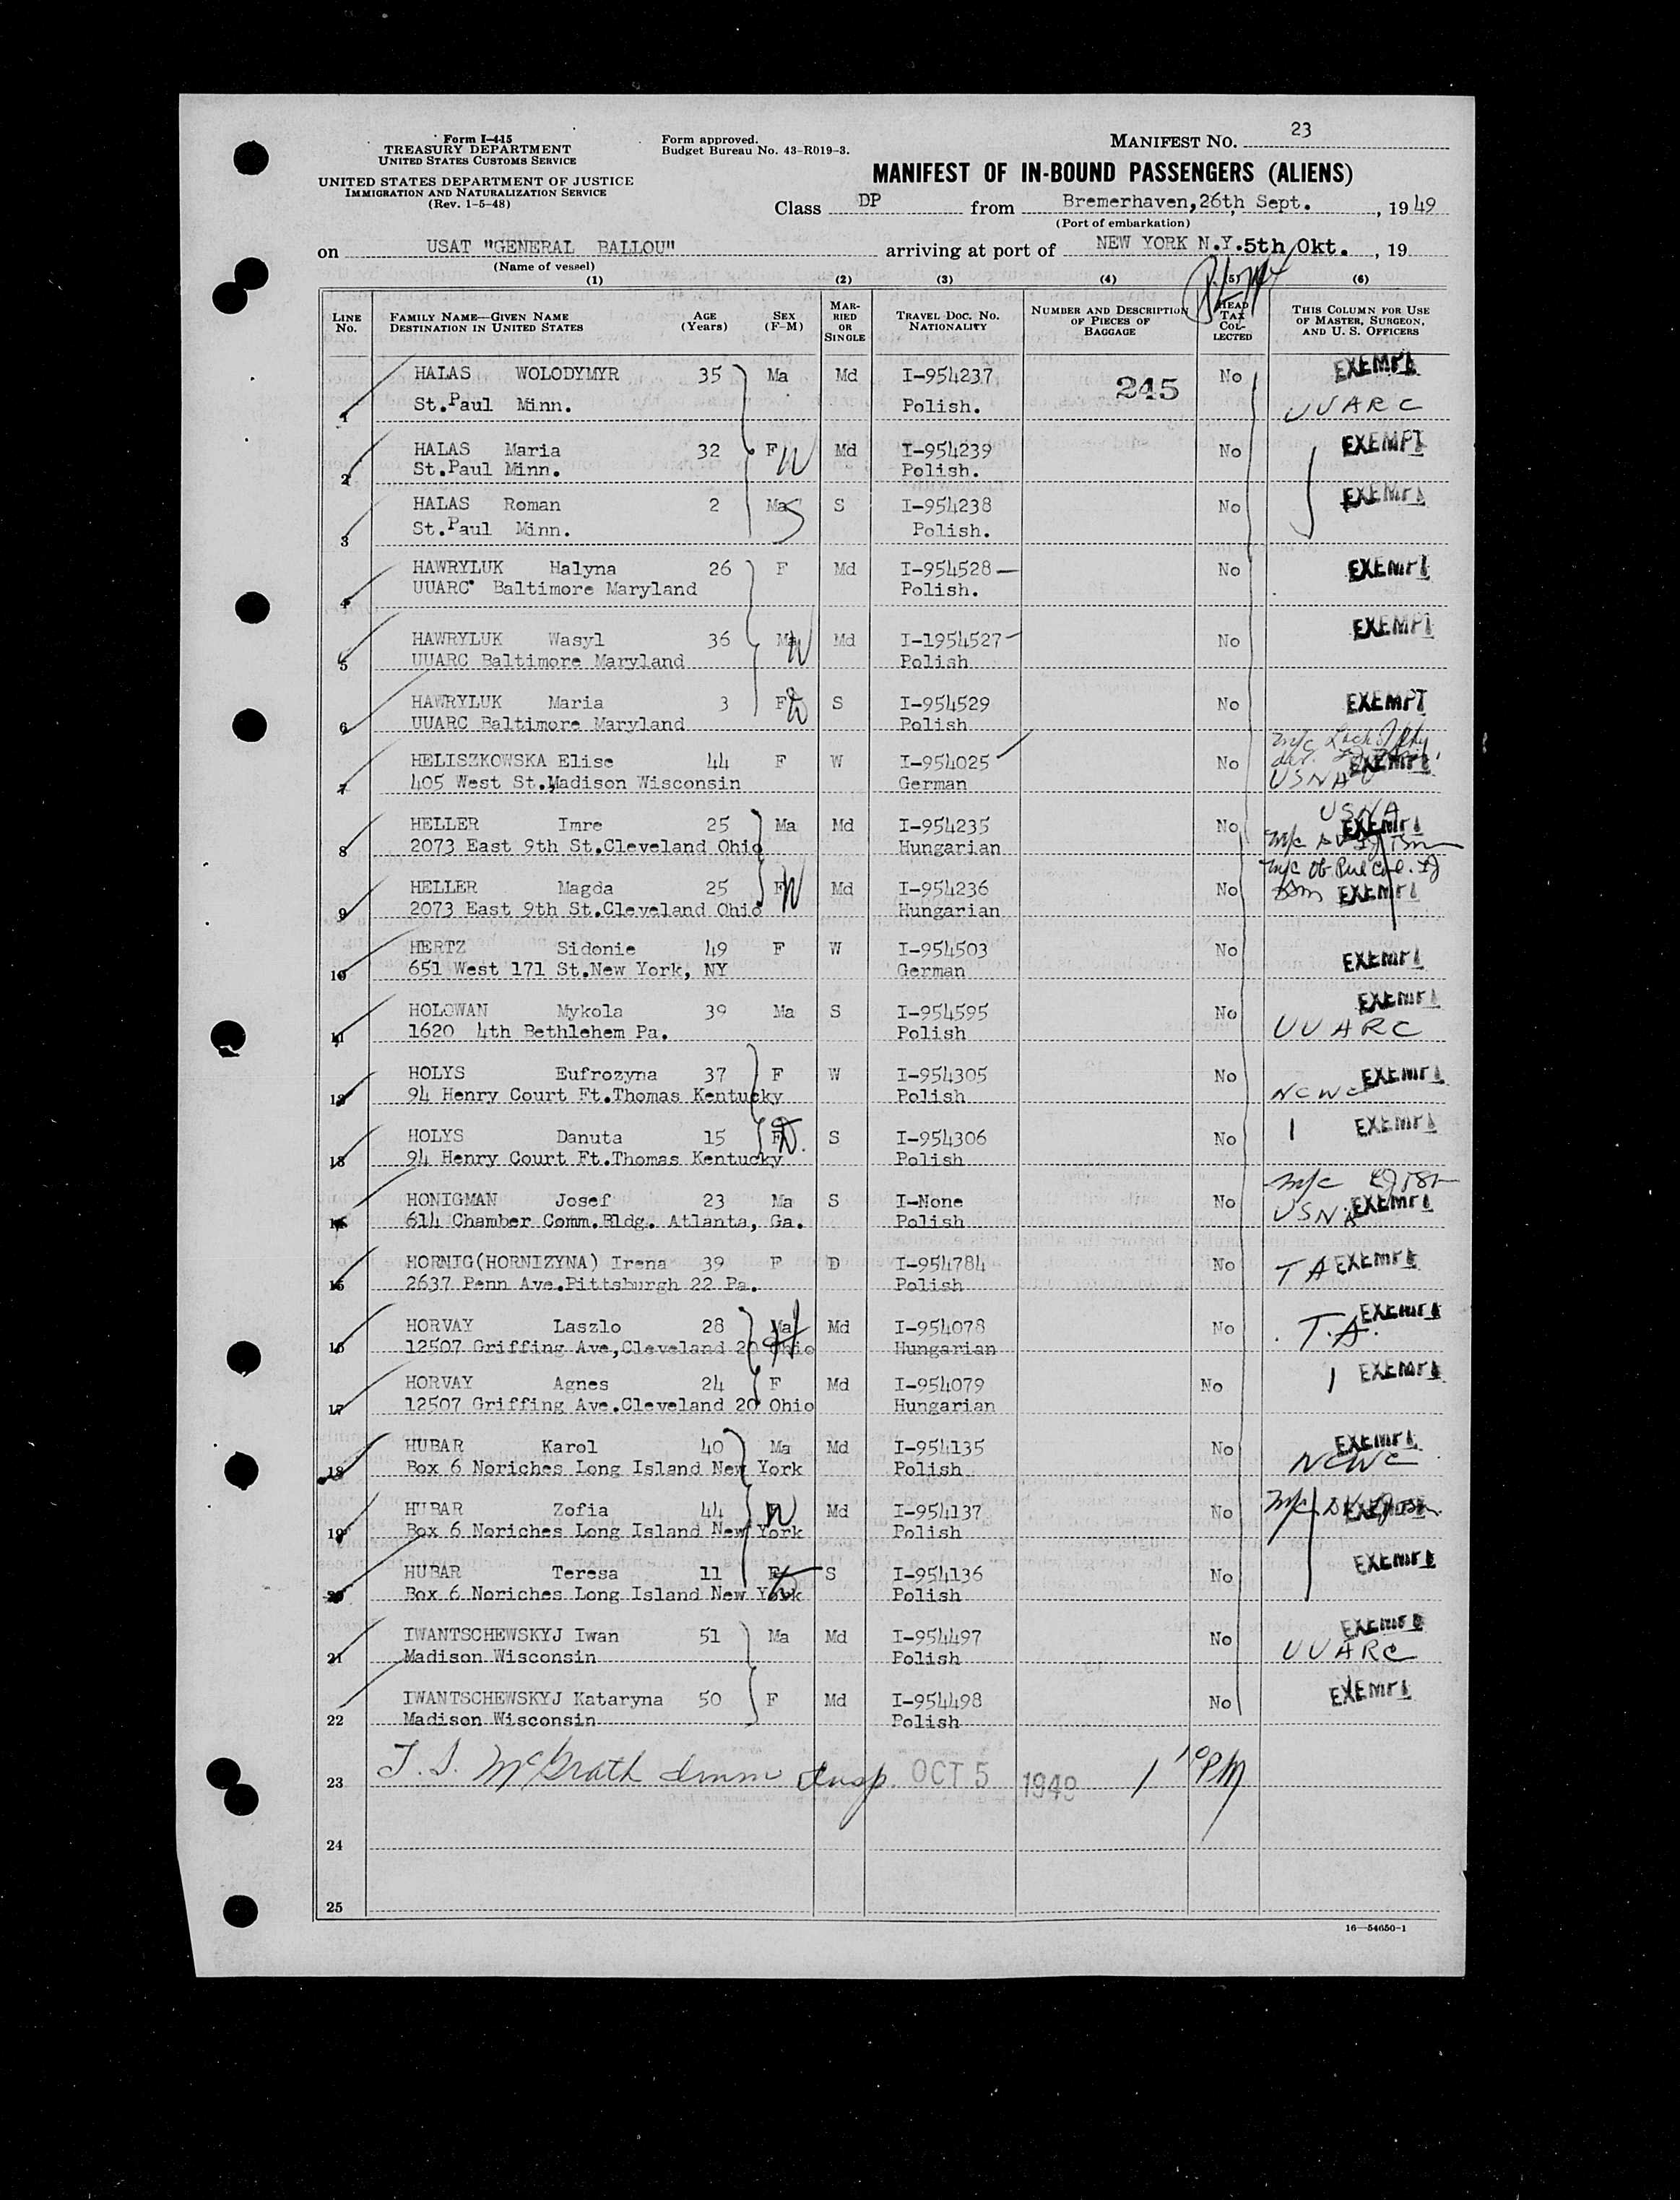 Form I-415
TREASURY DEPARTMENT
UNITED STATES CUSTOMS SERVICE
UNITED STATES DEPARTMENT OF JUSTICE
IMMIGRATION AND NATURALIZATION SERVICE
(Rev. 1-5-48)
Form approved.
Budget Bureau No. 43-R019-3.
MANIFEST NO. 23
MANIFEST OF IN-BOUND PASSENGERS (ALIENS)
Class DP from Bremerhaven,26th Sept. , 19 49
(Port of embarkation)
on USAT "GENERAL BALLOU" arriving at port of NEW YORK N.Y.5th Okt. , 19
(Name of vessel)
(1) (2) (3) (4) (5) (6)
LINE No. FAMILY NAME—GIVEN NAME DESTINATION IN UNITED STATES AGE (Years) SEX (F-M) MARRIED OR SINGLE TRAVEL DOC. No. NATIONALITY NUMBER AND DESCRIPTION OF PIECES OF BAGGAGE HEAD TAX COLLECTED THIS COLUMN FOR USE OF MASTER, SURGEON, AND U. S. OFFICERS
HALAS WOLODYMYR 35 Ma Md I-954237 245 No EXEMPT
1 St.Paul Minn. Polish. UUARC
HALAS Maria 32 F W Md I-954239 No EXEMPT
2 St.Paul Minn. Polish.
HALAS Roman 2 Ma S S I-954238 No EXEMPT
3 St.Paul Minn. Polish.
HAWRYLUK Halyna 26 F Md I-954528 No EXEMPT
4 UUARC Baltimore Maryland Polish.
HAWRYLUK Wasyl 36 Ma W Md I-1954527 No EXEMPT
5 UUARC Baltimore Maryland Polish
HAWRYLUK Maria 3 F S I-954529 No EXEMPT
6 UUARC Baltimore Maryland Polish
HELISZKOWSKA Elise 44 F W I-954025 No EXEMPT
7 405 West St.,Madison Wisconsin German USNA
HELLER Imre 25 Ma Md I-954235 No USNA EXEMPT
8 2073 East 9th St.Cleveland Ohio Hungarian
HELLER Magda 25 F W Md I-954236 No EXEMPT
9 2073 East 9th St.Cleveland Ohio Hungarian
HERTZ Sidonie 49 F W I-954503 No EXEMPT
10 651 West 171 St.New York, NY German
HOLOWAN Mykola 39 Ma S I-954595 No EXEMPT
11 1620 4th Bethlehem Pa. Polish UUARC
HOLYS Eufrozyna 37 F W I-954305 No EXEMPT
12 94 Henry Court Ft.Thomas Kentucky Polish NCWC
HOLYS Danuta 15 F S I-954306 No EXEMPT
13 94 Henry Court Ft.Thomas Kentucky Polish
HONIGMAN Josef 23 Ma S I-None No EXEMPT
14 614 Chamber Comm.Bldg. Atlanta, Ga. Polish USNA
HORNIG(HORNIZYNA) Irena 39 F D I-954784 No TA EXEMPT
15 2637 Penn Ave.Pittsburgh 22 Pa. Polish
HORVAY Laszlo 28 Ma Md I-954078 No EXEMPT
16 12507 Griffing Ave,Cleveland 20 Ohio Hungarian T.A.
HORVAY Agnes 24 F Md I-954079 No EXEMPT
17 12507 Griffing Ave.Cleveland 20 Ohio Hungarian
HUBAR Karol 40 Ma Md I-954135 No EXEMPT
18 Box 6 Noriches Long Island New York Polish NCWC
HUBAR Zofia 44 F W Md I-954137 No EXEMPT
19 Box 6 Noriches Long Island New York Polish
HUBAR Teresa 11 F S I-954136 No EXEMPT
20 Box 6 Noriches Long Island New York Polish
IWANTSCHEWSKYJ Iwan 51 Ma Md I-954497 No EXEMPT
21 Madison Wisconsin Polish UUARC
IWANTSCHEWSKYJ Kataryna 50 F Md I-954498 No EXEMPT
22 Madison Wisconsin Polish
23 T. S. McGrath Imm Insp. OCT 5 1949 1 10 PM
24
25
16—54650-1